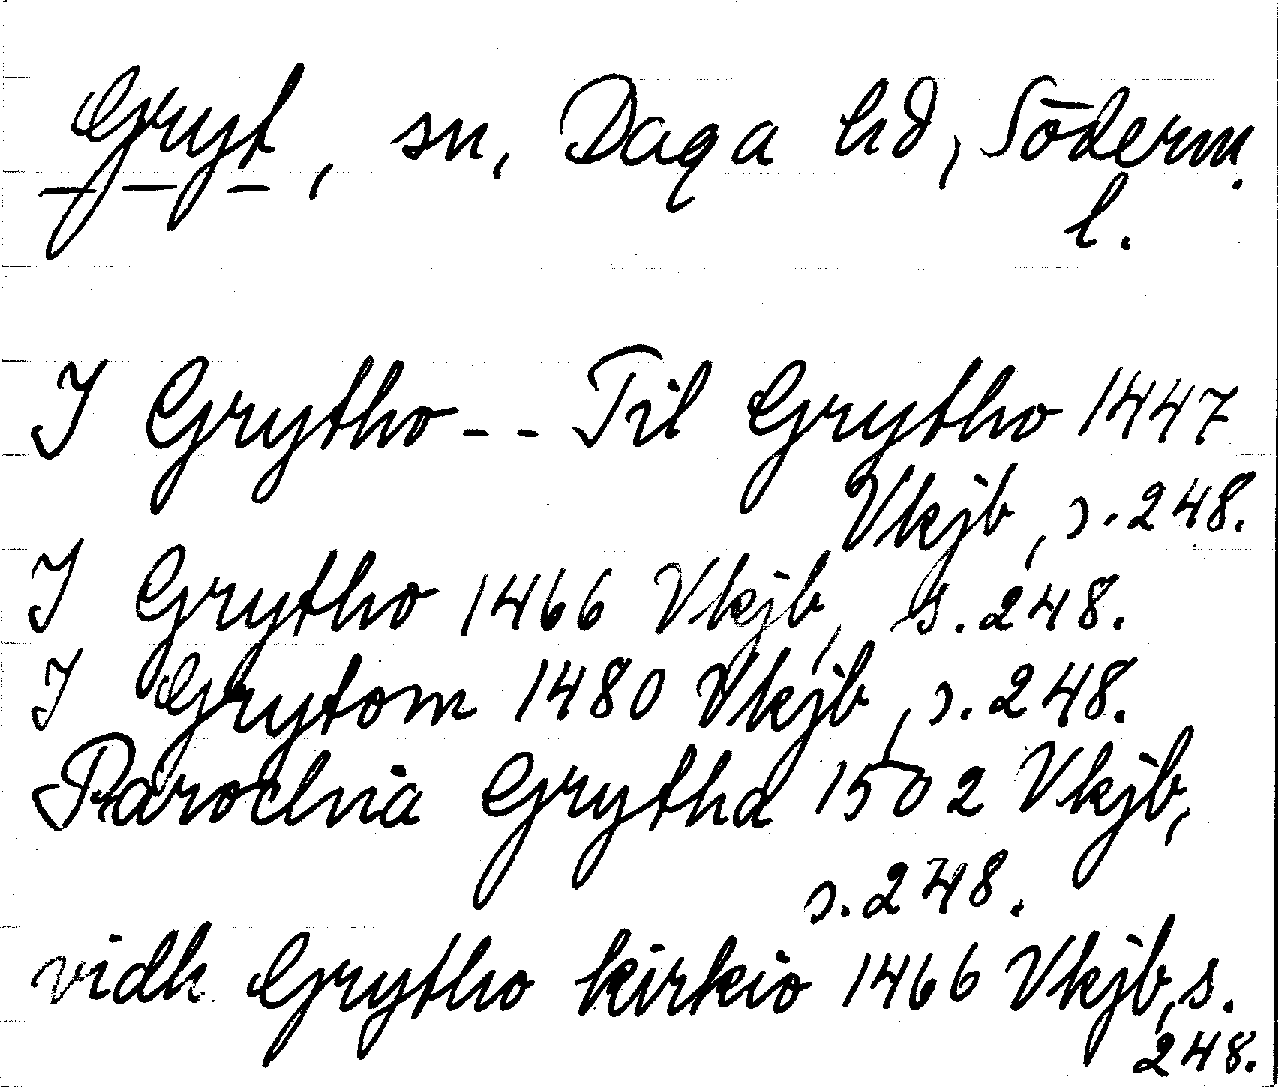 Gryt, sn, Daga hd, Söderm.
l.
I Grytho -- Til Grytho 1447
Vkjb, s. 248.
I Grytho 1466 Vkjb, s. 248.
I Grytom 1480 Vkjb, s. 248.
Parochia Grytha 1502 Vkjb,
s. 248.
vidh Grytho kirkio 1466 Vkjb, s.
248.